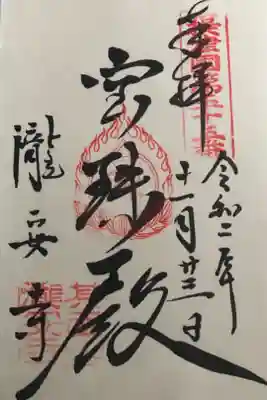 奉拝
令和二年
十一月廿三日
宝珠殿
瀧安寺